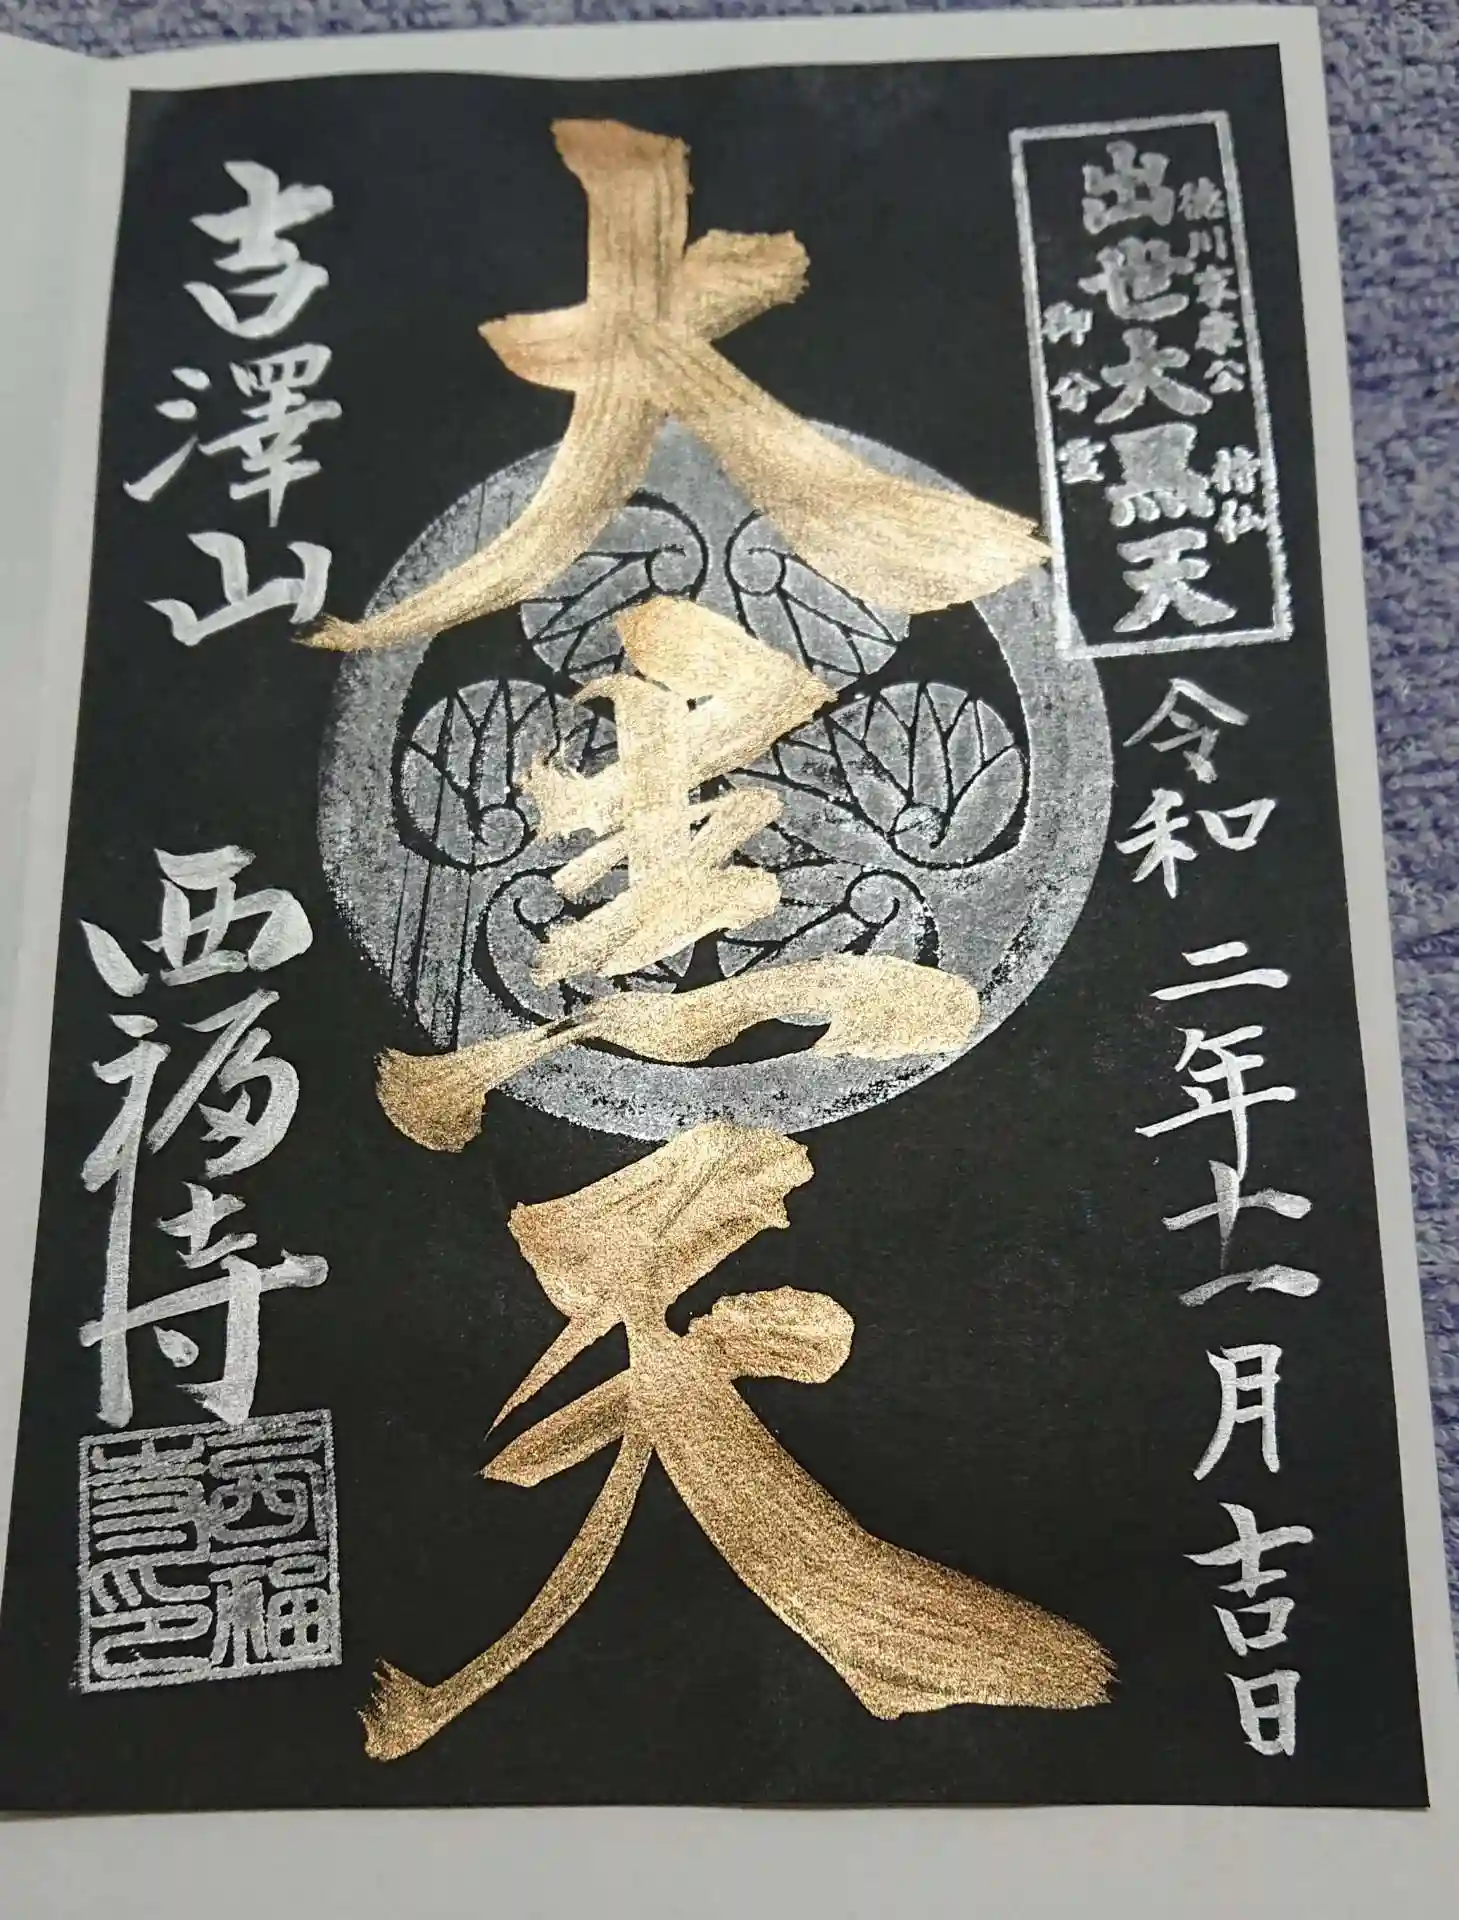 徳川家康公 持仏
出世大黒天
御分霊
令和二年十一月吉日
大黒天
吉澤山 西福寺
西福
寺印